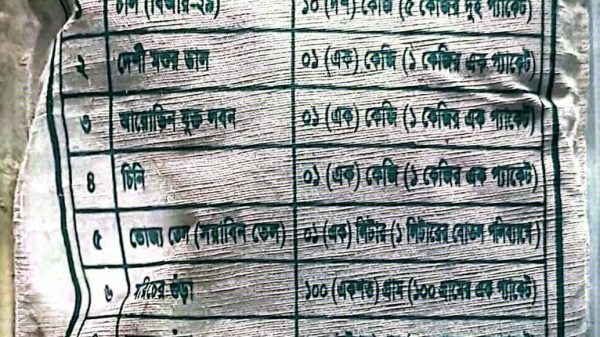 চাল (বিআর-২৯) ১০ (দশ) কেজি (৫ কেজির দুই প্যাকেট)
২ দেশী মসুর ডাল ০১ (এক) কেজি (১ কেজির এক প্যাকেট)
৩ আয়োডিন যুক্ত লবন ০১ (এক) কেজি (১ কেজির এক প্যাকেট)
৪ চিনি ০১ (এক) কেজি (১ কেজির এক প্যাকেট)
৫ ভোজ্য তেল (সয়াবিন তেল) ০১ (এক) লিটার (১ লিটারের বোতল পলিব্যাগে)
৬ মরিচের গুঁড়া ১০০ (একশত) গ্রাম (১০০ গ্রামের এক প্যাকেট)